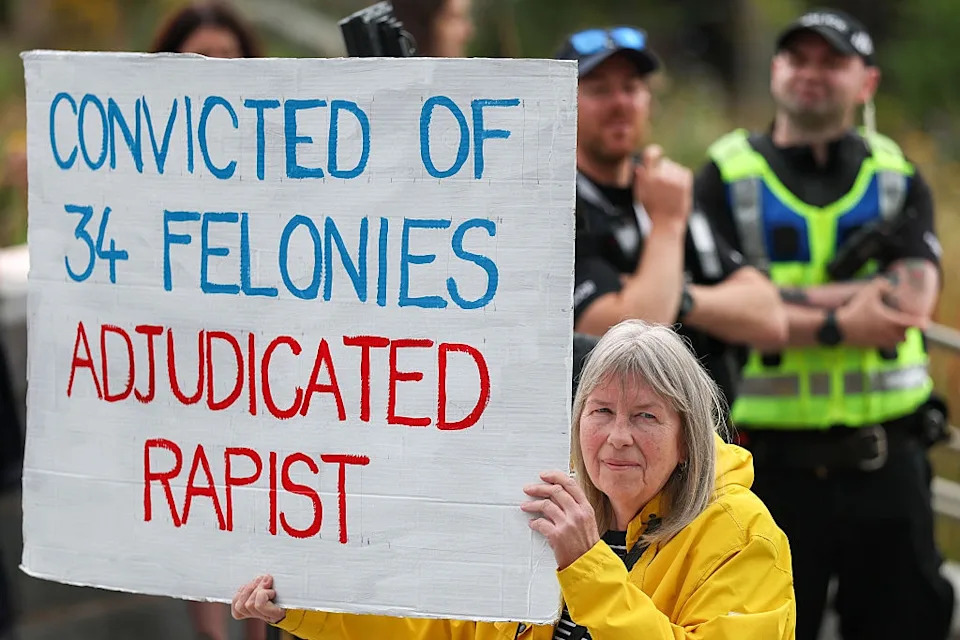 CONVICTED OF
34 FELONIES
ADJUDICATED
RAPIST